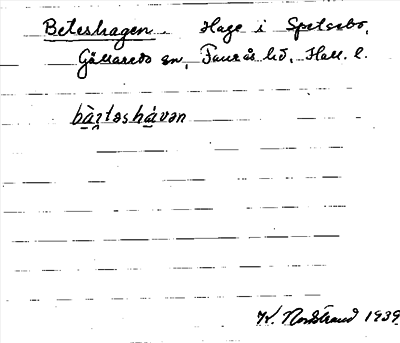 Beteshagen. Hage i Spelsebo,
Gällareds sn, Faurås hd, Hall. l.
bà̤ɿtəshá̤vən
K. Nordstrand 1939